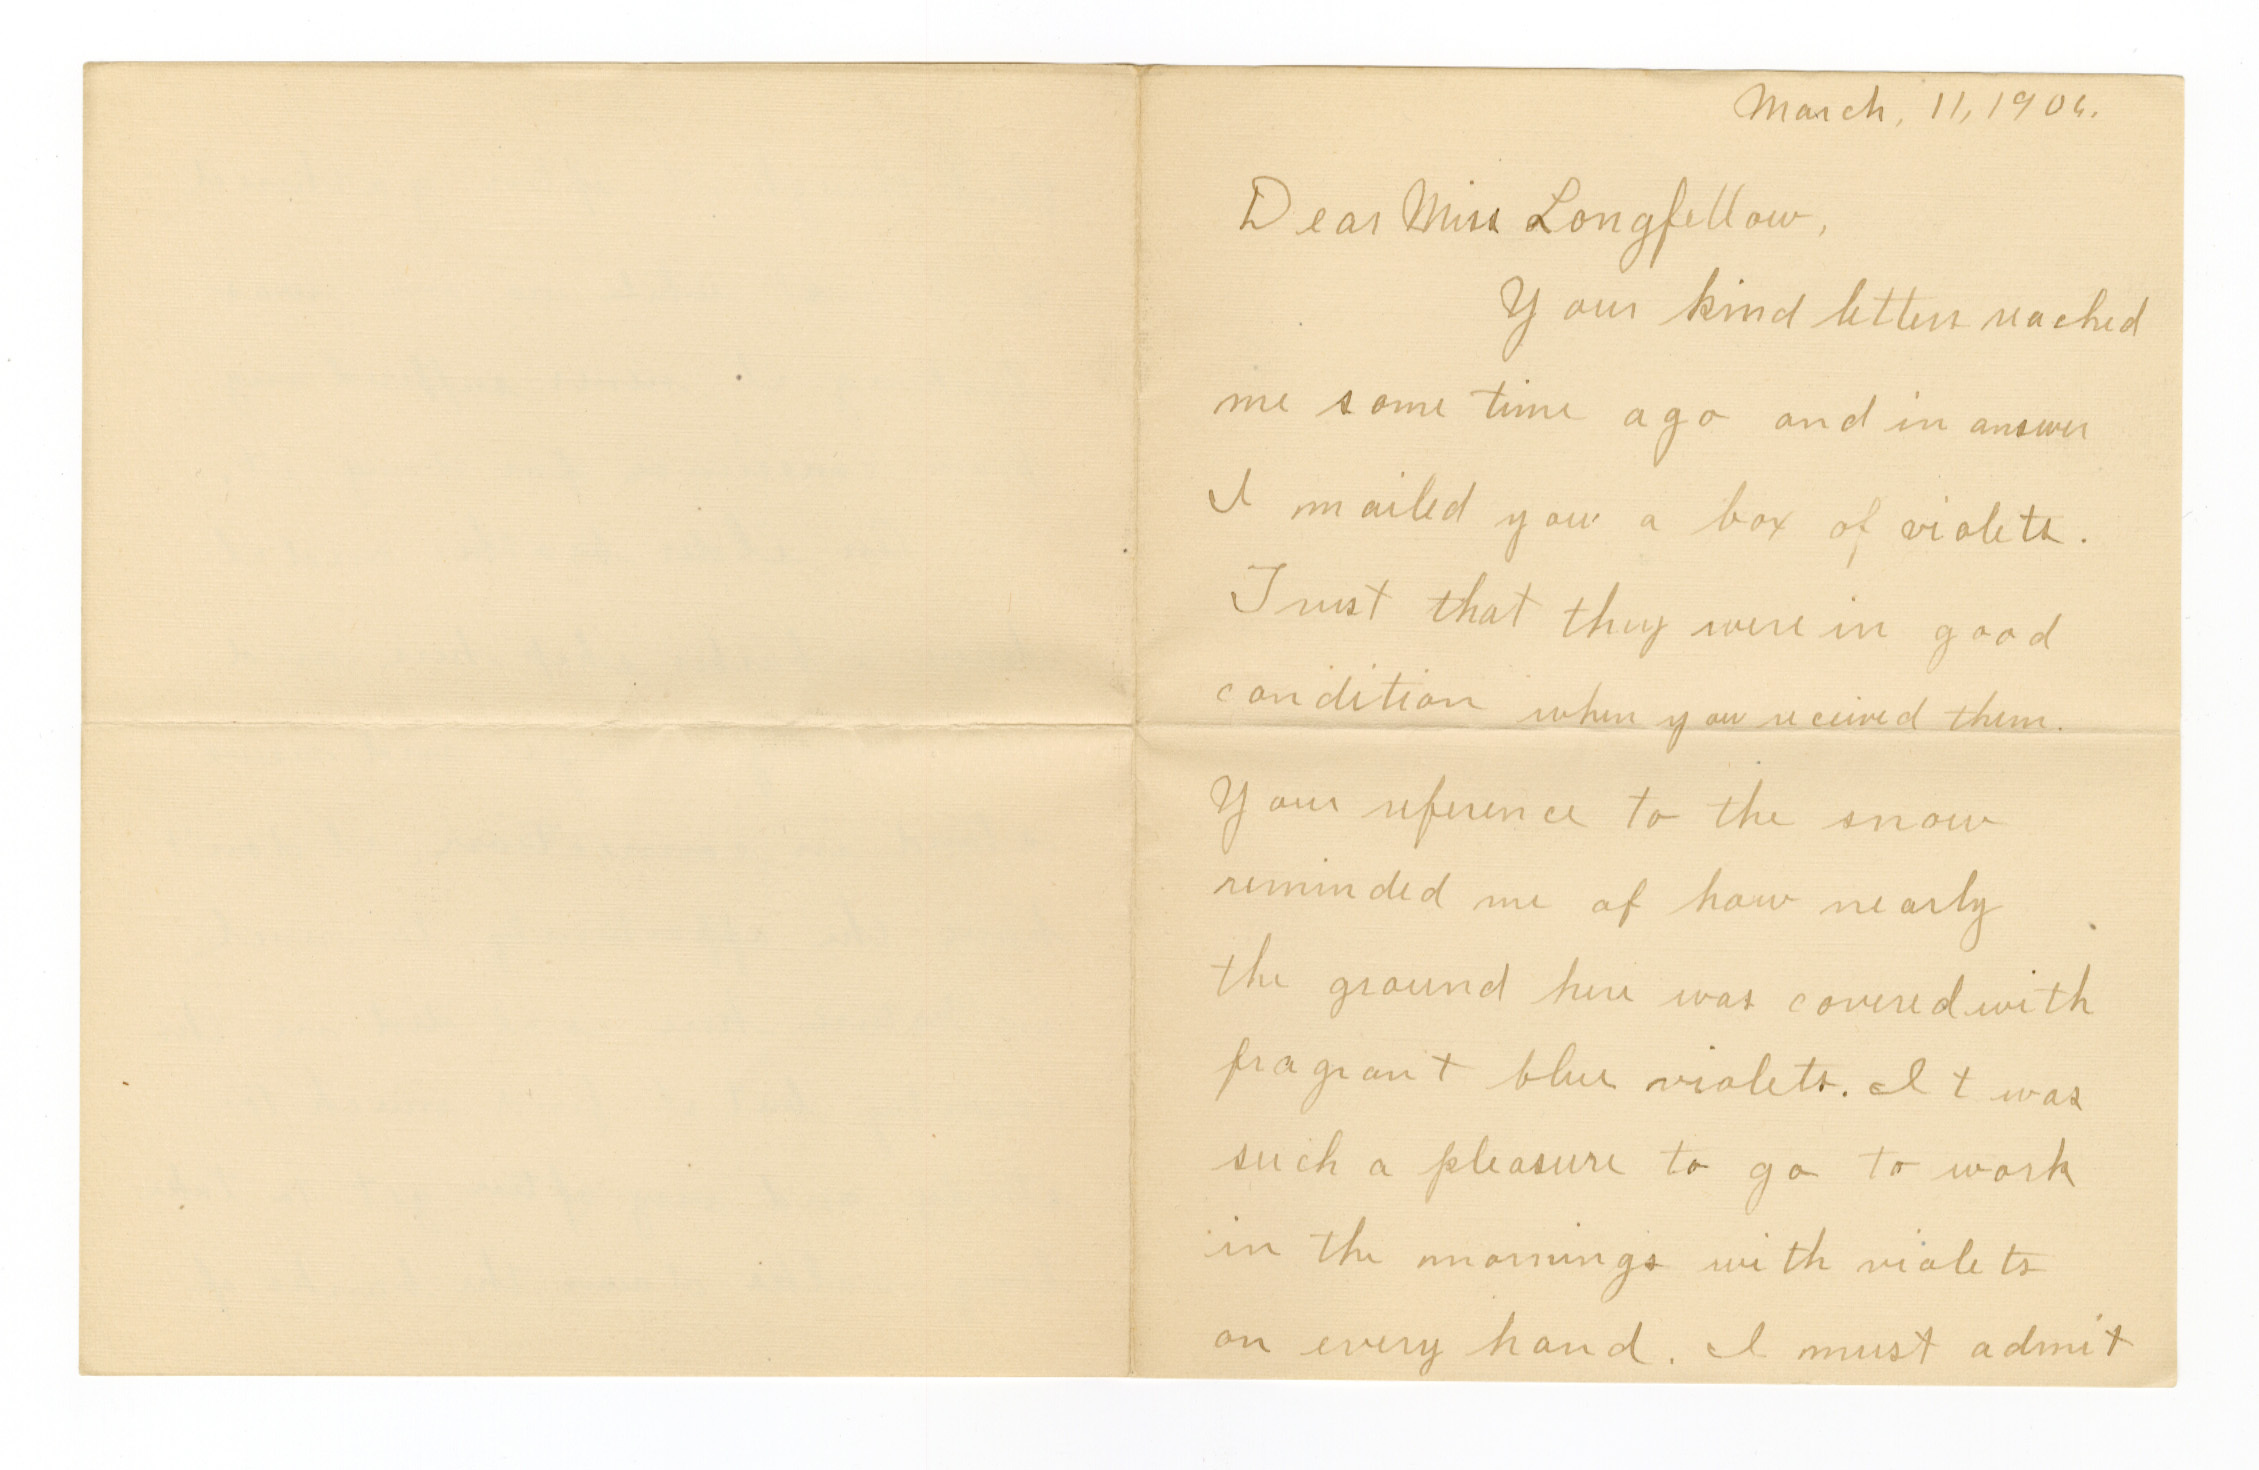 March, 11, 1906.
Dear Miss Longfellow,
Your kind letters reached
me some time ago and in answer
I mailed you a box of violets.
Trust that they were in good
condition when you received them.
Your reference to the snow
reminded me of how nearly
the ground here was covered with
fragrant blue violets. It was
such a pleasure to go to work
in the mornings with violets
on every hand. I must admit